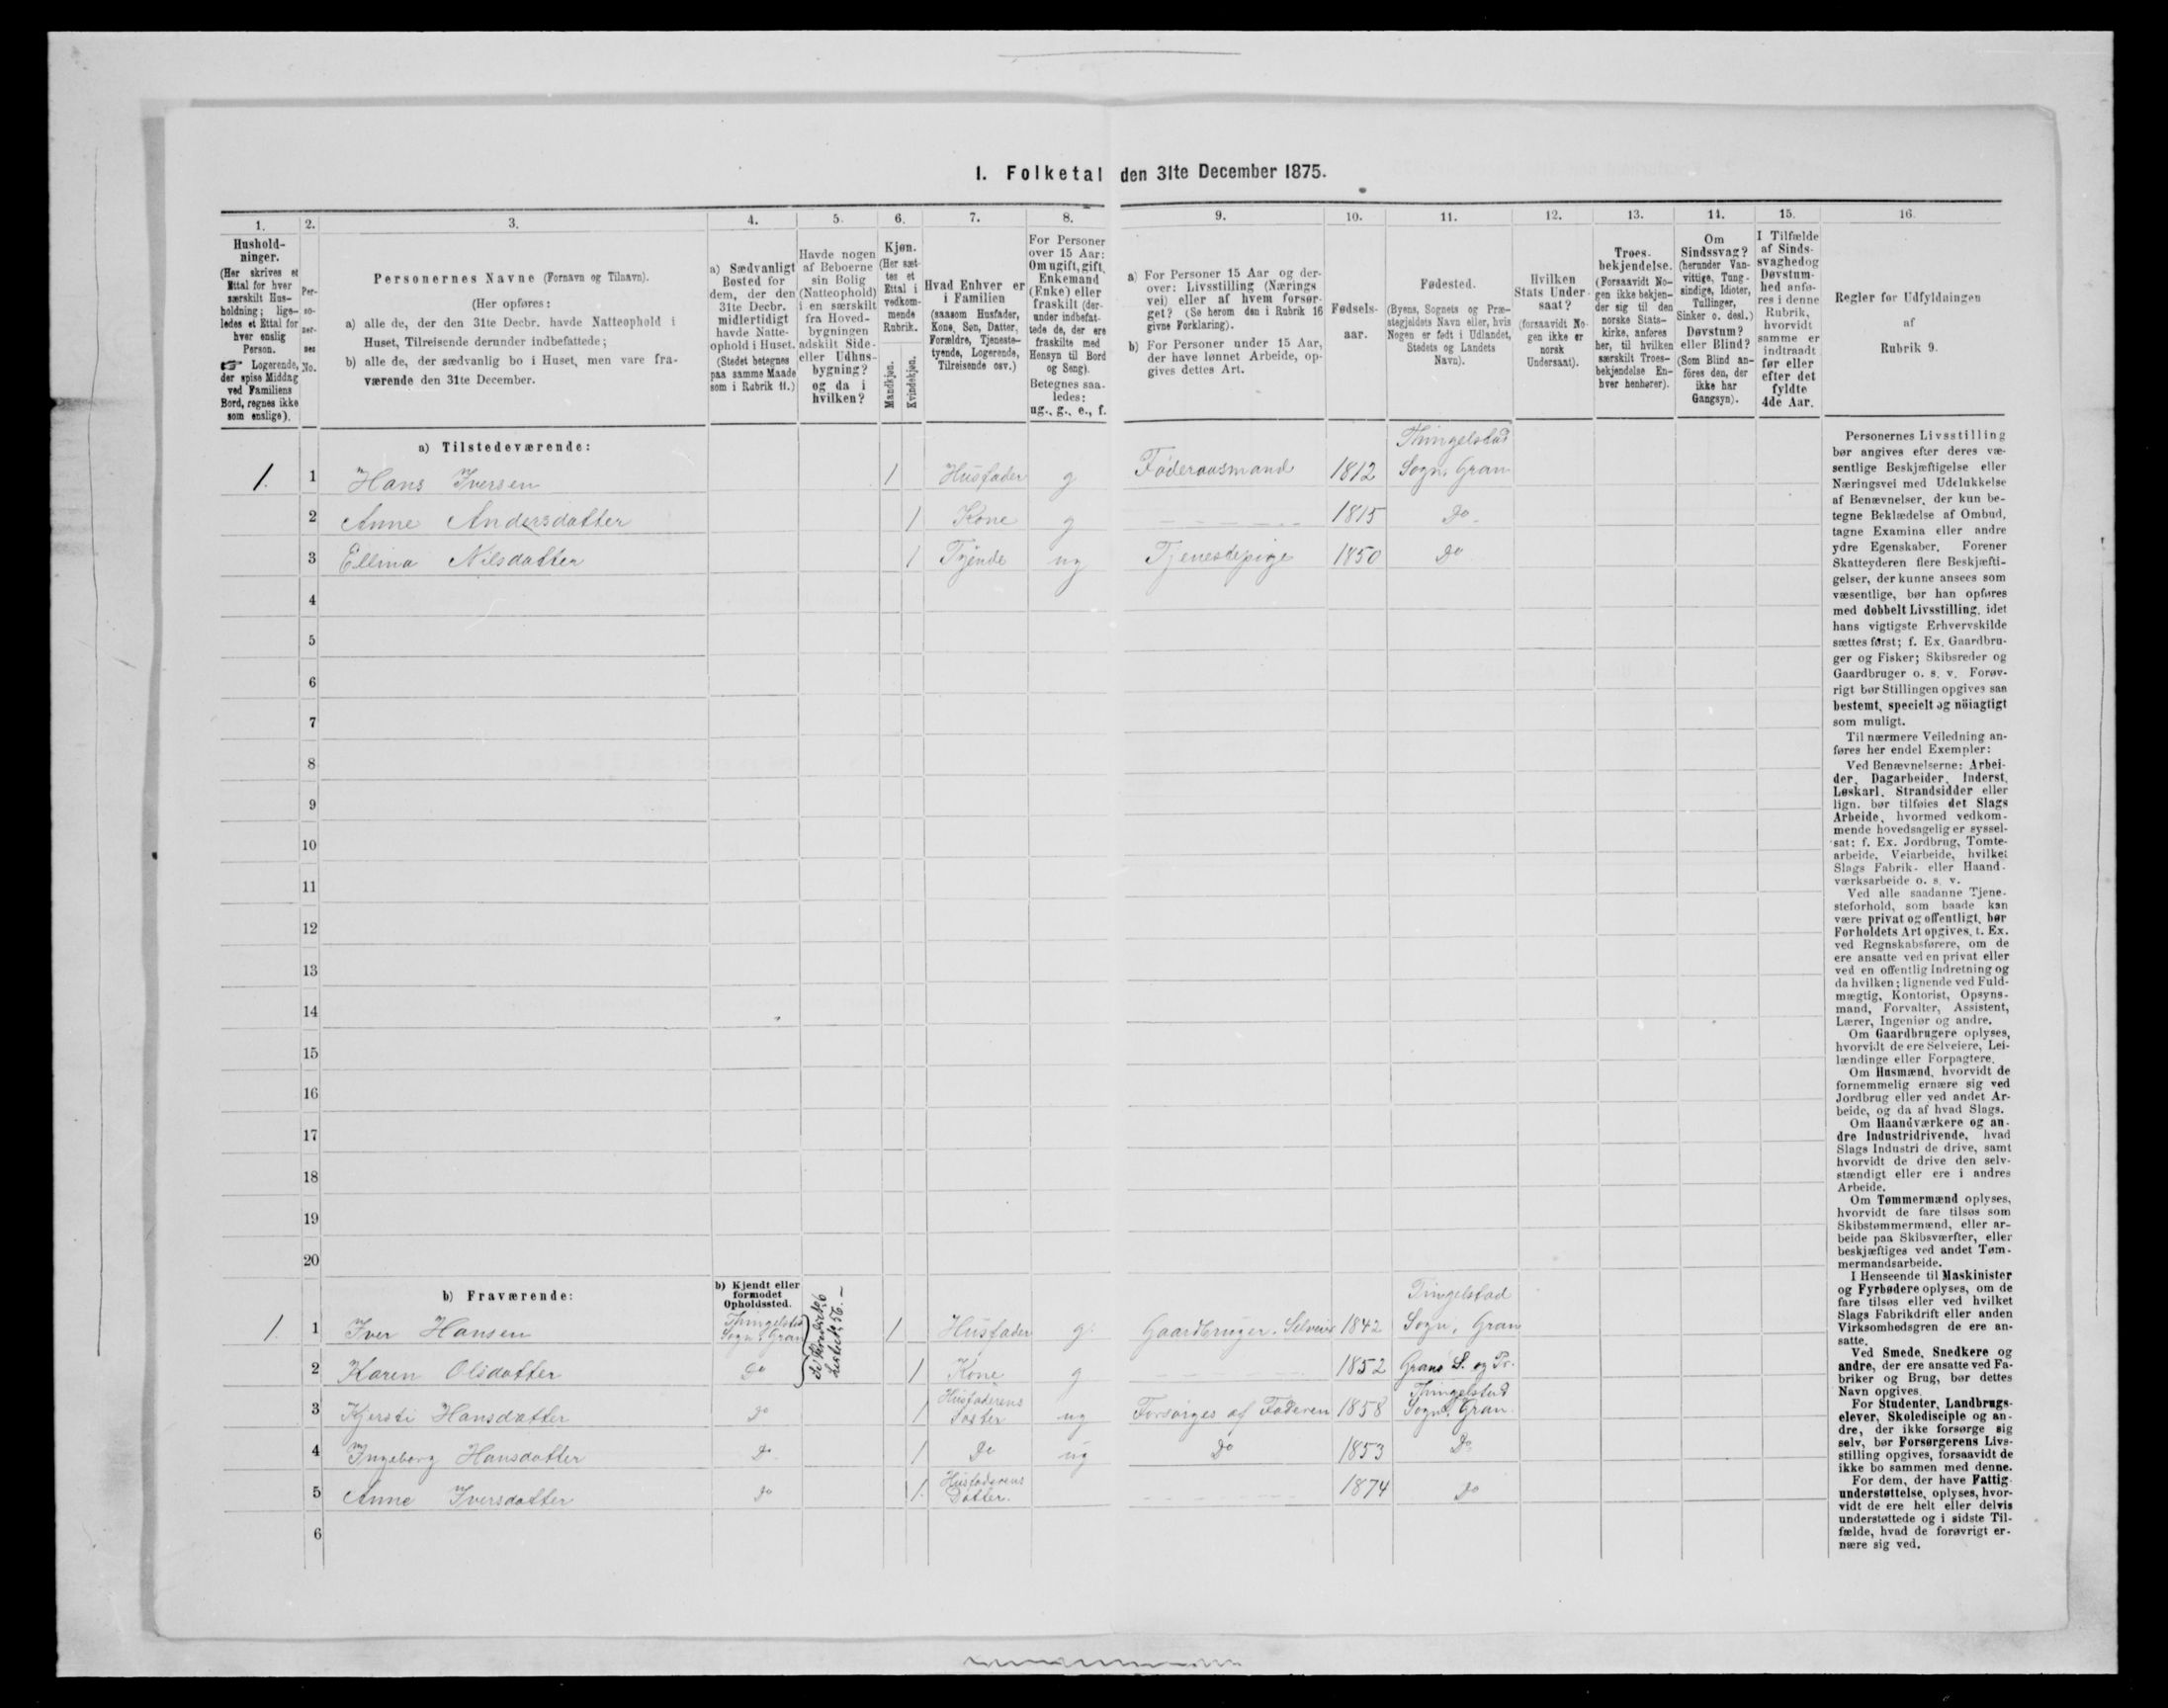 I. Folketal den 31te December 1875.
1. 2. 3. 4. 5. 6. 7. 8. 9. 10. 11. 12. 13. 14. 15. 16.
Hushold-
ninger.
(Her skrives et
Ettal for hver
særskilt Hus-
holdning; lige-
ledes et Ettal for
hver enslig
Person.
☞ Logerende,
der spise Middag
ved Familiens
Bord, regnes ikke
som enslige).
Per-
so-
ner-
nes
No.
Personernes Navne (Fornavn og Tilnavn).
(Her opføres:
a) alle de, der den 31te Decbr. havde Natteophold i
Huset, Tilreisende derunder indbefattede;
b) alle de, der sædvanlig bo i Huset, men vare fra-
værende den 31te December.
a) Sædvanligt
Bosted for
dem, der den
31te Decbr.
midlertidigt
havde Natte-
ophold i Huset.
(Stedet betegnes
paa samme Maade
som i Rubrik 11.)
Havde nogen
af Beboerne
sin Bolig
(Natteophold)
i en særskilt
fra Hoved-
bygningen
adskilt Side-
eller Udhus-
bygning?
og da i
hvilken?
Kjøn.
(Her sæt-
tes et
Ettal i
vedkom-
mende
Rubrik.
Mandkjøn.
Kvindekjøn.
Hvad Enhver er
i Familien
(saasom Husfader,
Kone, Søn, Datter,
Forældre, Tjeneste-
tyende, Logerende,
Tilreisende osv.)
For Personer
over 15 Aar:
Om ugift, gift,
Enkemand
(Enke) eller
fraskilt (der-
under indbefat-
tede de, der ere
fraskilte med
Hensyn til Bord
og Seng).
Betegnes saa-
ledes:
ug., g., e., f.
a) For Personer 15 Aar og der-
over: Livsstilling (Nærings
vei) eller af hvem forsør-
get? (Se herom den i Rubrik 16
givne Forklaring).
b) For Personer under 15 Aar,
der have lønnet Arbeide, op-
gives dettes Art.
Fødsels-
aar.
Fødested.
(Byens, Sognets og Præ-
stegjeldets Navn eller, hvis
Nogen er født i Udlandet,
Stedets og Landets
Navn).
Hvilken
Stats Under-
saat?
(forsaavidt No-
gen ikke er
norsk
Undersaat).
Troes-
bekjendelse.
(Forsaavidt No-
gen ikke bekjen-
der sig til den
norske Stats-
kirke, anføres
her, til hvilken
særskilt Troes-
bekjendelse En-
hver henhører).
Om
Sindssvag?
(herunder Van-
vittige, Tung-
sindige, Idioter,
Tullinger,
Sinker o. desl.)
Døvstum?
eller Blind?
(Som Blind an-
föres den, der
ikke har
Gangsyn).
I Tilfælde
af Sinds-
svaghed og
Døvstum-
hed anfø-
res i denne
Rubrik,
hvorvidt
samme er
indtraadt
før eller
efter det
fyldte
4de Aar.
Regler for Udfyldningen
af
Rubrik 9.
a) Tilstedeværende:
Thingelstad
1. 1 Hans Iversen 1 Husfader g Føderaasmand 1812 Sogn, Gran
2 Anne Andersdatter 1 Kone g 1815 Do.
3 Ellina Nilsdatter 1 Tyende ug Tjenestepige 1850 Do
4
5
6
7
8
9
10
11
12
13
14
15
16
17
18
19
20
b) Fraværende:
b) Kjendt eller
formodet
Opholdssted.
Thingelstad Tingelstad
1. 1 Iver Hansen Sogn, Gran 1 Husfader g. Gaardbruger. Selveier 1842 Sogn, Gran
2 Karen Olsdatter Do 1 Kone g 1852 Grans S. og Pr.
Husfaderens Thingelstad
3 Kjersti Hansdatter Do 1 Søster ug Forsørges af Faderen 1858 Sogn, Gran.
4 Ingeborg Hansdatter Do 1 Do ug Do 1853 Do
Husfaderens
5 Anne Iversdatter Do 1. Datter. 1874 Do
6
Personernes Livsstilling
bør angives efter deres væ-
sentlige Beskjæftigelse eller
Næringsvei med Udelukkelse
af Benævnelser, der kun be-
tegne Beklædelse af Ombud,
tagne Examina eller andre
ydre Egenskaber. Forener
Skatteyderen flere Beskjæfti-
gelser, der kunne ansees som
væsentlige, bør han opføres
med dobbelt Livsstilling, idet
hans vigtigste Erhvervskilde
sættes først; f. Ex. Gaardbru-
ger og Fisker; Skibsreder og
Gaardbruger o. s. v. Forøv-
rigt bør Stillingen opgives saa
bestemt, specielt og nöiagtigt
som muligt.
Til nærmere Veiledning an-
føres her endel Exempler:
Ved Benævnelserne: Arbei-
der, Dagarbeider, Inderst,
Løskarl, Strandsidder eller
lign. bør tilføies det Slags
Arbeide, hvormed vedkom-
mende hovedsagelig er syssel-
sat; f. Ex. Jordbrug, Tomte-
arbeide, Veiarbeide, hvilket
Slags Fabrik- eller Haand-
værksarbeide o. s. v.
Ved alle saadanne Tjene-
steforhold, som baade kan
være privat og offentligt, bør
Forholdets Art opgives, t. Ex.
ved Regnskabsførere, om de
ere ansatte ved en privat eller
ved en offentlig Indretning og
da hvilken; lignende ved Fuld-
mægtig, Kontorist, Opsyns-
mand, Forvalter, Assistent,
Lærer, Ingeniør og andre.
Om Gaardbrugere oplyses,
hvorvidt de ere Selveiere, Lei-
lændinge eller Forpagtere.
Om Husmænd, hvorvidt de
fornemmelig ernære sig ved
Jordbrug eller ved andet Ar-
beide, og da af hvad Slags.
Om Haandværkere og an-
dre Industridrivende, hvad
Slags Industri de drive, samt
hvorvidt de drive den selv-
stændigt eller ere i andres
Arbeide.
Om Tømmermænd oplyses,
hvorvidt de fare tilsøs som
Skibstømmermænd, eller ar-
beide paa Skibsværfter, eller
beskjæftiges ved andet Tøm-
mermandsarbeide.
I Henseende til Maskinister
og Fyrbødere oplyses, om de
fare tilsøs eller ved hvilket
Slags Fabrikdrift eller anden
Virksomhedsgren de ere an-
satte.
Ved Smede, Snedkere og
andre, der ere ansatte ved Fa-
briker og Brug, bør dettes
Navn opgives.
For Studenter, Landbrugs-
elever, Skoledisciple og an-
dre, der ikke forsørge sig
selv, bør Forsørgerens Livs-
stilling opgives, forsaavidt de
ikke bo sammen med denne.
For dem, der have Fattig-
understøttelse, oplyses, hvor-
vidt de ere helt eller delvis
understøttede og i sidste Til-
fælde, hvad de forøvrigt er-
nære sig ved.